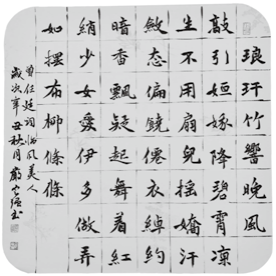 琅玕竹響晚風
敲引姮娥降碧霄凉
生不用扇兒搖嬌汗
斂态偏饒僊衣綽約
暗香飄疑起舞着紅
綃少女愛伊多做弄
如擺布柳條條
風美人
歲次辛丑秋月